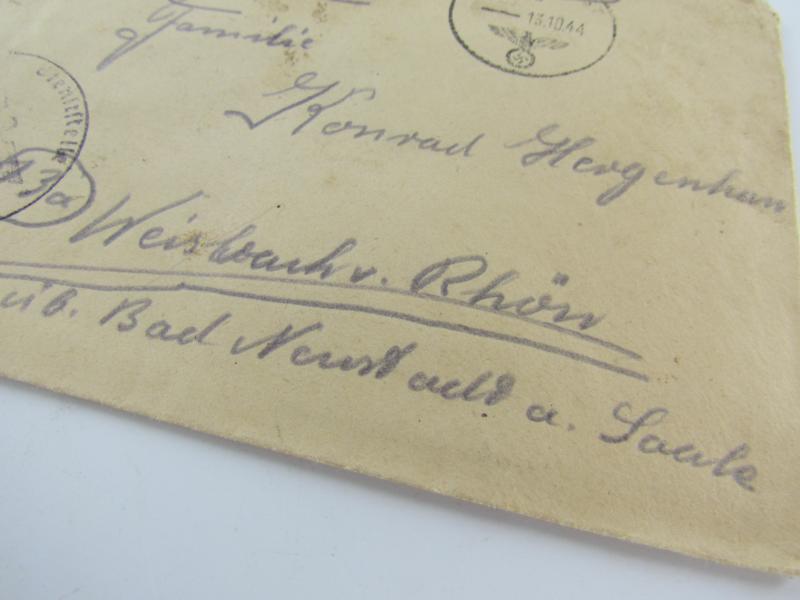 13.10.44
Familie
Konrad Hergenhan
Dienststelle
13a
Weisbach v. Rhön
üb. Bad Neustadt a. Saale